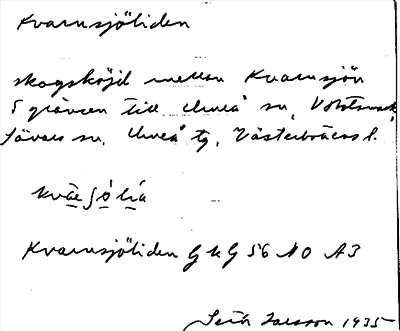 Kvarnsjöliden
skogshöjd mellan Kvarnsjön
o gränsen till Umeå sn,
Sävars sn, Umeå tg, Västerbottens l.
Kvarnsjöliden G k G 56 N O A3
Larsson 1935